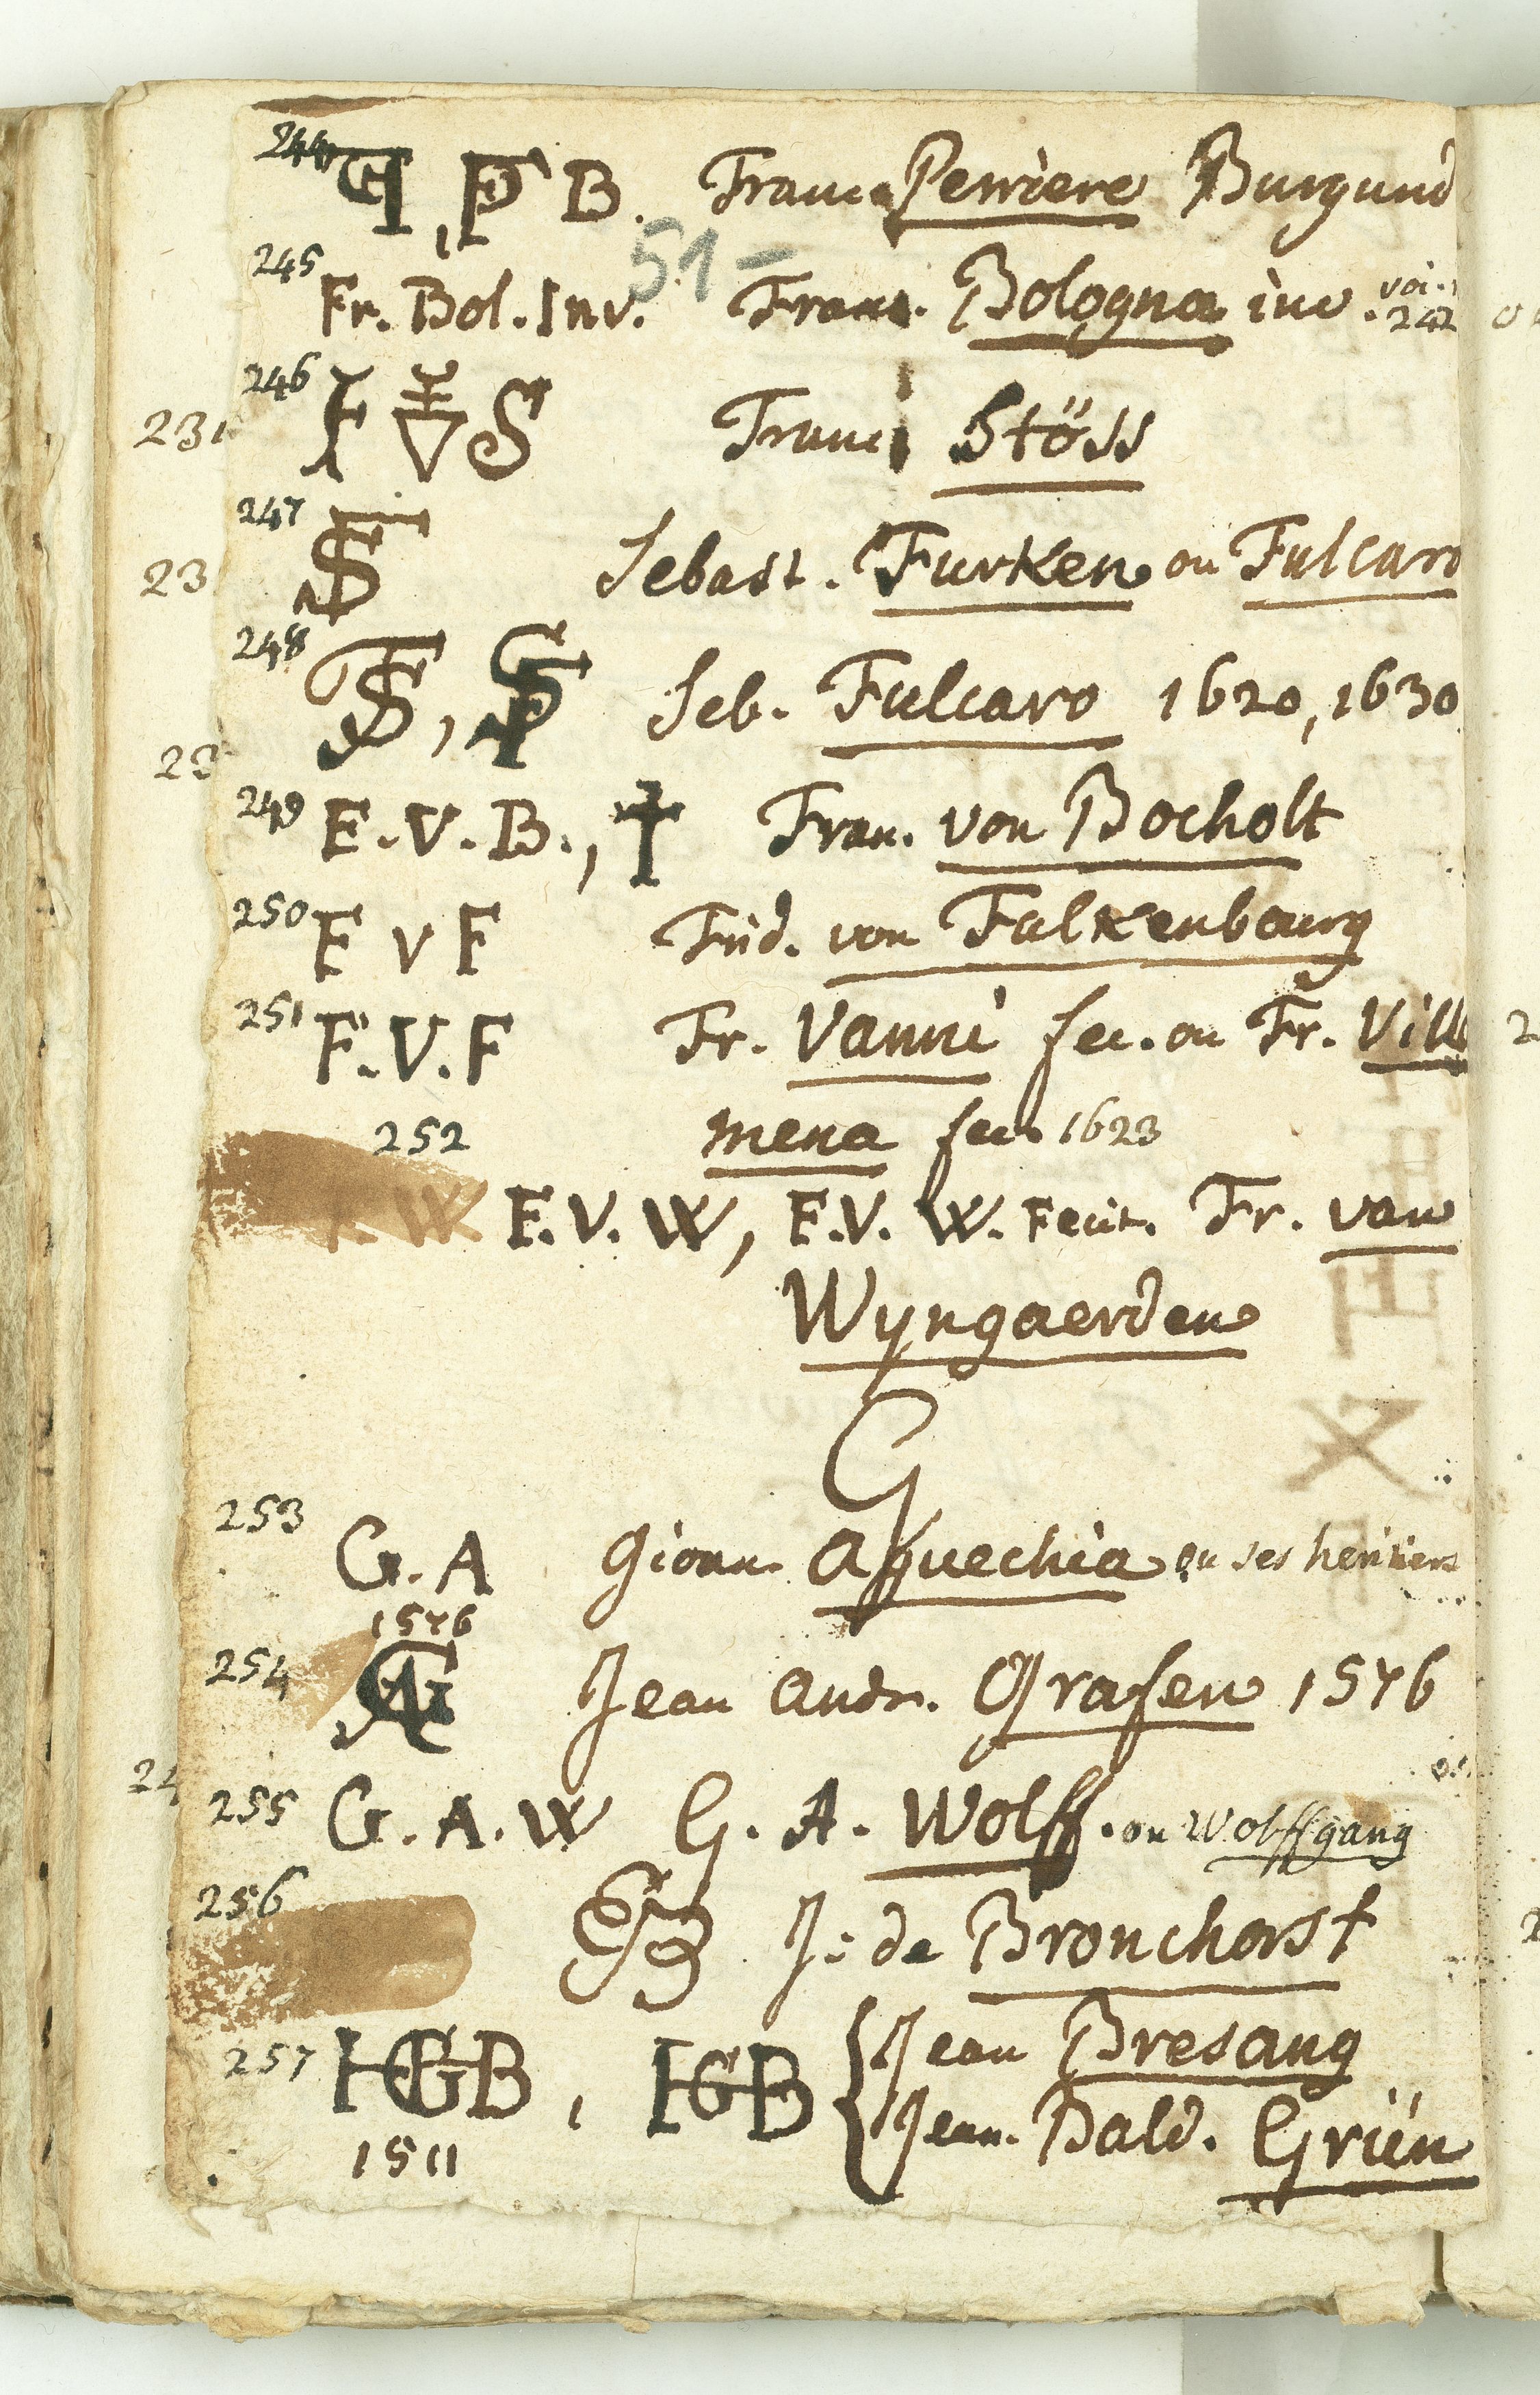 244 FP, FP B. Franc. Perriere Burgund
51 —
245 Fr. Bol. Inv. Franc. Bologna inv. voi. 242
246 F V S Franc Stöss
231
247 FS Sebast. Furken ou Fulcaro
23
248 FS, SF Seb. Fulcaro 1620, 1630
23
249 F. V. B., † Fran. von Bocholt
250 F V F Frid. von Falkenbourg
251 F. V. F Fr. Vanni fec. ou Fr. Ville
mena fec. 1623
252
F. V. W, F. V. W. Fecit. Fr. van
Wyngaerden
G
253 G. A Giovan. Aquechia ou ses heritiers
1576
254 AG Jean Andr. Grafen 1576
24
255 G. A. W G. A. Wolff. ou Wolffgang
256 J: de Bronchorst
257 HGB, HGB { Jean Bresang
Jean. Bald. Grün
1511